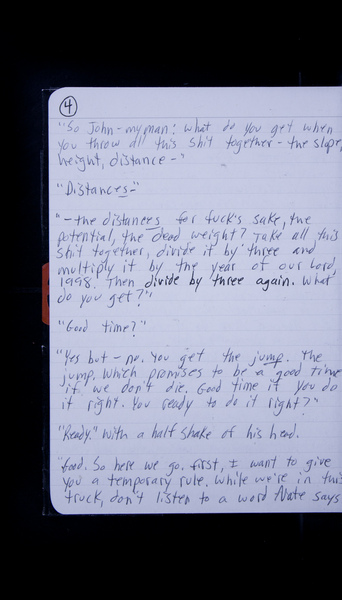 4
"So John-my man: what do you get when
you throw all this shit together - the slope,
height, distance-"
"Distances-"
"- the distances for fuck's sake, the
potential, the dead weight? Take all this
shit together, divide it by three and
multiply it by the year of our Lord,
1998. Then divide by three again. What
do you get?"
"Good time?"
"Yes but - no. You get the jump. The
jump. Which promises to be a good time
if we don't die. Good time if you do
it right. You ready to do it right?"
"Ready." With a half shake of his head.
"Good. So here we go. First, I want to give
you a temporary rule. While we're in this
truck, don't listen to a word Nate says